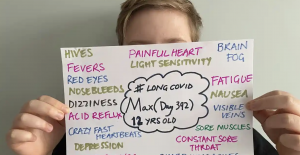 HIVES
PAINFUL HEART
BRAIN FOG
FEVERS
LIGHT SENSITIVITY
RED EYES
# LONG COVID
FATIGUE
NOSEBLEEDS
Max (Day 392)
NAUSEA
DIZZINESS
12 YRS OLD
VISIBLE VEINS
ACID REFLUX
SORE MUSCLES
CRAZY FAST HEARTBEATS
CONSTANT SORE THROAT
DEPRESSION